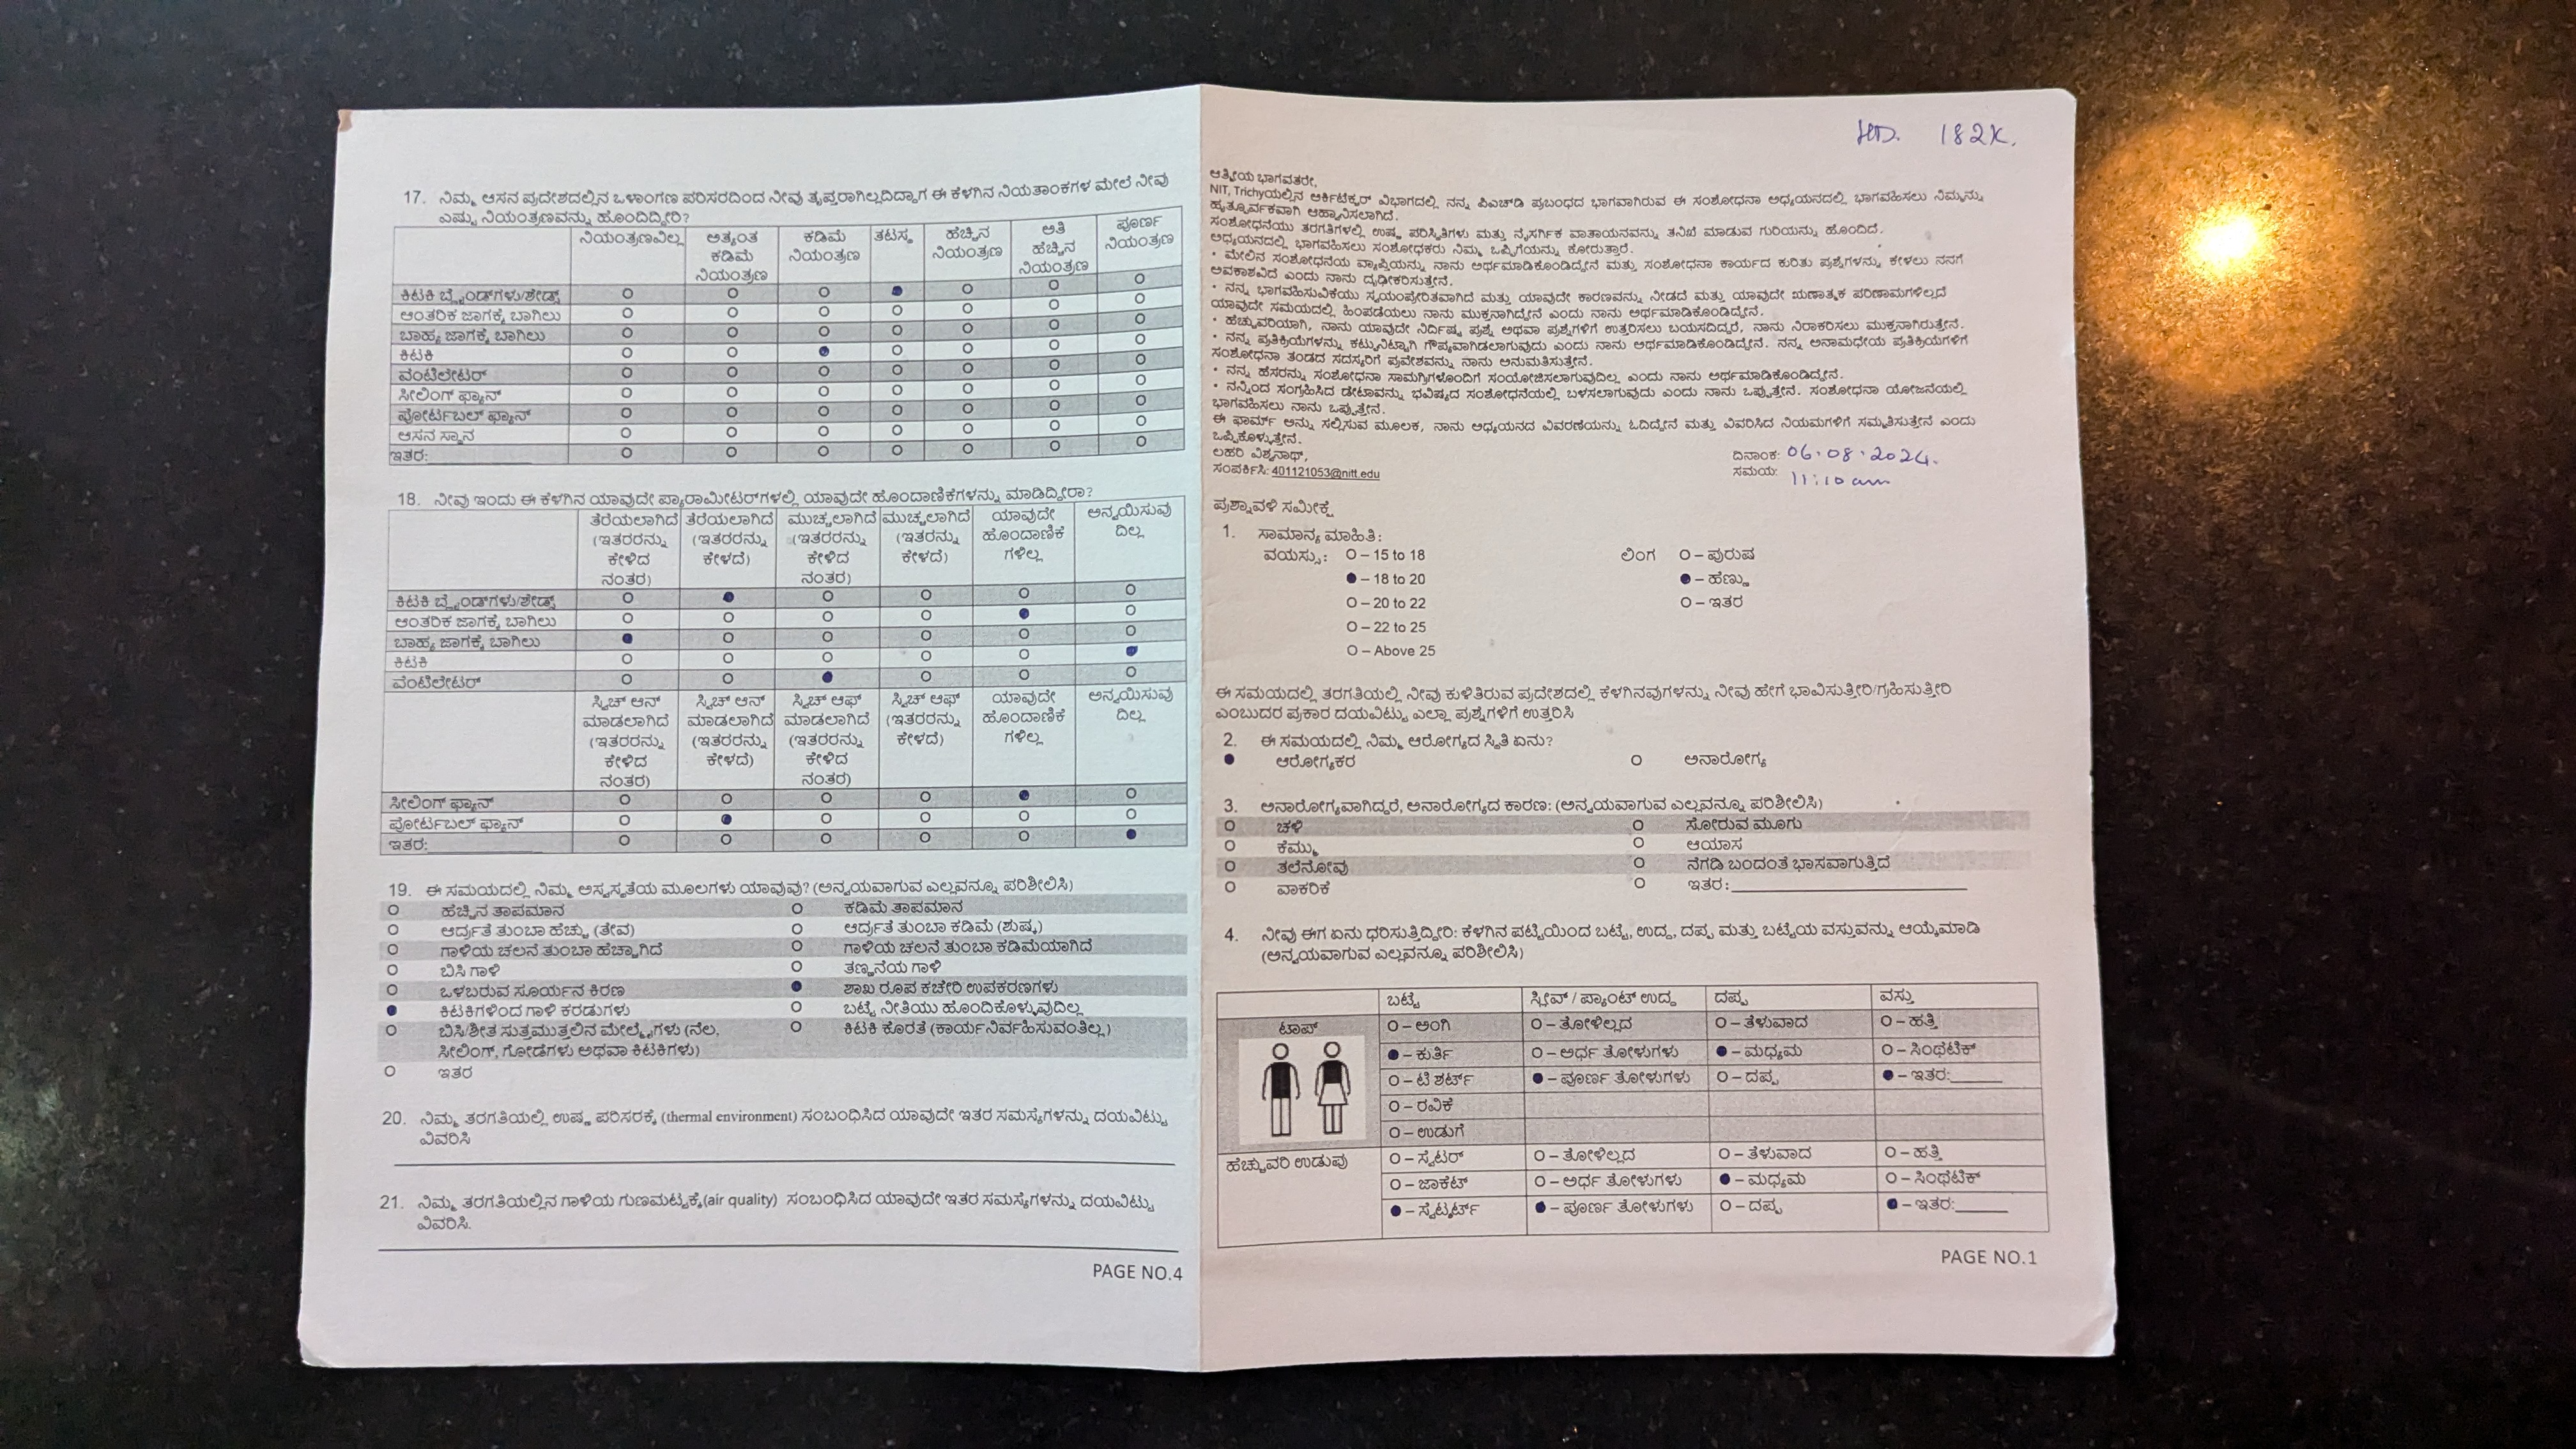 17. ನಿಮ್ಮ ಆಸನ ಪ್ರದೇಶದಲ್ಲಿನ ಒಳಾಂಗಣ ಪರಿಸರದಿಂದ ನೀವು ತೃಪ್ತರಾಗಿಲ್ಲದಿದ್ದಾಗ ಈ ಕೆಳಗಿನ ನಿಯತಾಂಕಗಳ ಮೇಲೆ ನೀವು
ಎಷ್ಟು ನಿಯಂತ್ರಣವನ್ನು ಹೊಂದಿದ್ದೀರಿ?
ನಿಯಂತ್ರಣವಿಲ್ಲ ಅತ್ಯಂತ ಕಡಿಮೆ ನಿಯಂತ್ರಣ ಕಡಿಮೆ ನಿಯಂತ್ರಣ ತಟಸ್ಥ ಹೆಚ್ಚಿನ ನಿಯಂತ್ರಣ ಅತಿ ಹೆಚ್ಚಿನ ನಿಯಂತ್ರಣ ಪೂರ್ಣ ನಿಯಂತ್ರಣ
ಕಿಟಕಿ ಬ್ಲೈಂಡ್‌ಗಳು/ಶೇಡ್ಸ್
ಆಂತರಿಕ ಜಾಗಕ್ಕೆ ಬಾಗಿಲು
ಬಾಹ್ಯ ಜಾಗಕ್ಕೆ ಬಾಗಿಲು
ಕಿಟಕಿ
ವೆಂಟಿಲೇಟರ್
ಸೀಲಿಂಗ್ ಫ್ಯಾನ್
ಪೋರ್ಟಬಲ್ ಫ್ಯಾನ್
ಆಸನ ಸ್ಥಾನ
ಇತರ:
18. ನೀವು ಇಂದು ಈ ಕೆಳಗಿನ ಯಾವುದೇ ಪ್ಯಾರಾಮೀಟರ್‌ಗಳಲ್ಲಿ ಯಾವುದೇ ಹೊಂದಾಣಿಕೆಗಳನ್ನು ಮಾಡಿದ್ದೀರಾ?
ತೆರೆಯಲಾಗಿದೆ (ಇತರರನ್ನು ಕೇಳಿದ ನಂತರ) ತೆರೆಯಲಾಗಿದೆ (ಇತರರನ್ನು ಕೇಳದೆ) ಮುಚ್ಚಲಾಗಿದೆ (ಇತರರನ್ನು ಕೇಳಿದ ನಂತರ) ಮುಚ್ಚಲಾಗಿದೆ (ಇತರನ್ನು ಕೇಳದೆ) ಯಾವುದೇ ಹೊಂದಾಣಿಕೆ ಗಳಿಲ್ಲ ಅನ್ವಯಿಸುವು ದಿಲ್ಲ
ಕಿಟಕಿ ಬ್ಲೈಂಡ್‌ಗಳು/ಶೇಡ್ಸ್
ಆಂತರಿಕ ಜಾಗಕ್ಕೆ ಬಾಗಿಲು
ಬಾಹ್ಯ ಜಾಗಕ್ಕೆ ಬಾಗಿಲು
ಕಿಟಕಿ
ವೆಂಟಿಲೇಟರ್
ಸ್ವಿಚ್ ಆನ್ ಮಾಡಲಾಗಿದೆ (ಇತರರನ್ನು ಕೇಳಿದ ನಂತರ) ಸ್ವಿಚ್ ಆನ್ ಮಾಡಲಾಗಿದೆ (ಇತರರನ್ನು ಕೇಳದೆ) ಸ್ವಿಚ್ ಆಫ್ ಮಾಡಲಾಗಿದೆ (ಇತರರನ್ನು ಕೇಳಿದ ನಂತರ) ಸ್ವಿಚ್ ಆಫ್ (ಇತರರನ್ನು ಕೇಳದೆ) ಯಾವುದೇ ಹೊಂದಾಣಿಕೆ ಗಳಿಲ್ಲ ಅನ್ವಯಿಸುವು ದಿಲ್ಲ
ಸೀಲಿಂಗ್ ಫ್ಯಾನ್
ಪೋರ್ಟಬಲ್ ಫ್ಯಾನ್
ಇತರ:
19. ಈ ಸಮಯದಲ್ಲಿ ನಿಮ್ಮ ಅಸ್ವಸ್ಥತೆಯ ಮೂಲಗಳು ಯಾವುವು? (ಅನ್ವಯವಾಗುವ ಎಲ್ಲವನ್ನೂ ಪರಿಶೀಲಿಸಿ)
ಹೆಚ್ಚಿನ ತಾಪಮಾನ ಕಡಿಮೆ ತಾಪಮಾನ
ಆರ್ದ್ರತೆ ತುಂಬಾ ಹೆಚ್ಚು (ತೇವ) ಆರ್ದ್ರತೆ ತುಂಬಾ ಕಡಿಮೆ (ಶುಷ್ಕ)
ಗಾಳಿಯ ಚಲನೆ ತುಂಬಾ ಹೆಚ್ಚಾಗಿದೆ ಗಾಳಿಯ ಚಲನೆ ತುಂಬಾ ಕಡಿಮೆಯಾಗಿದೆ
ಬಿಸಿ ಗಾಳಿ ತಣ್ಣನೆಯ ಗಾಳಿ
ಒಳಬರುವ ಸೂರ್ಯನ ಕಿರಣ ಶಾಖ ರೂಪ ಕಚೇರಿ ಉಪಕರಣಗಳು
ಕಿಟಕಿಗಳಿಂದ ಗಾಳಿ ಕರಡುಗಳು ಬಟ್ಟೆ ನೀತಿಯು ಹೊಂದಿಕೊಳ್ಳುವುದಿಲ್ಲ
ಬಿಸಿ/ಶೀತ ಸುತ್ತಮುತ್ತಲಿನ ಮೇಲ್ಮೈಗಳು (ನೆಲ, ಕಿಟಕಿ ಕೊರತೆ (ಕಾರ್ಯನಿರ್ವಹಿಸುವಂತಿಲ್ಲ)
ಸೀಲಿಂಗ್, ಗೋಡೆಗಳು ಅಥವಾ ಕಿಟಕಿಗಳು)
ಇತರ
20. ನಿಮ್ಮ ತರಗತಿಯಲ್ಲಿ ಉಷ್ಣ ಪರಿಸರಕ್ಕೆ (thermal environment) ಸಂಬಂಧಿಸಿದ ಯಾವುದೇ ಇತರ ಸಮಸ್ಯೆಗಳನ್ನು ದಯವಿಟ್ಟು
ವಿವರಿಸಿ
21. ನಿಮ್ಮ ತರಗತಿಯಲ್ಲಿನ ಗಾಳಿಯ ಗುಣಮಟ್ಟಕ್ಕೆ(air quality) ಸಂಬಂಧಿಸಿದ ಯಾವುದೇ ಇತರ ಸಮಸ್ಯೆಗಳನ್ನು ದಯವಿಟ್ಟು
ವಿವರಿಸಿ.
PAGE NO.4
182K.
ಆತ್ಮೀಯ ಭಾಗವತರೇ,
NIT, Trichyಯಲ್ಲಿನ ಆರ್ಕಿಟೆಕ್ಚರ್ ವಿಭಾಗದಲ್ಲಿ ನನ್ನ ಪಿಎಚ್‌ಡಿ ಪ್ರಬಂಧದ ಭಾಗವಾಗಿರುವ ಈ ಸಂಶೋಧನಾ ಅಧ್ಯಯನದಲ್ಲಿ ಭಾಗವಹಿಸಲು ನಿಮ್ಮನ್ನು
ಹೃತ್ಪೂರ್ವಕವಾಗಿ ಆಹ್ವಾನಿಸಲಾಗಿದೆ.
ಸಂಶೋಧನೆಯು ತರಗತಿಗಳಲ್ಲಿ ಉಷ್ಣ ಪರಿಸ್ಥಿತಿಗಳು ಮತ್ತು ನೈಸರ್ಗಿಕ ವಾತಾಯನವನ್ನು ತನಿಖೆ ಮಾಡುವ ಗುರಿಯನ್ನು ಹೊಂದಿದೆ.
ಅಧ್ಯಯನದಲ್ಲಿ ಭಾಗವಹಿಸಲು ಸಂಶೋಧಕರು ನಿಮ್ಮ ಒಪ್ಪಿಗೆಯನ್ನು ಕೋರುತ್ತಾರೆ.
• ಮೇಲಿನ ಸಂಶೋಧನೆಯ ವ್ಯಾಪ್ತಿಯನ್ನು ನಾನು ಅರ್ಥಮಾಡಿಕೊಂಡಿದ್ದೇನೆ ಮತ್ತು ಸಂಶೋಧನಾ ಕಾರ್ಯದ ಕುರಿತು ಪ್ರಶ್ನೆಗಳನ್ನು ಕೇಳಲು ನನಗೆ
ಅವಕಾಶವಿದೆ ಎಂದು ನಾನು ದೃಢೀಕರಿಸುತ್ತೇನೆ.
• ನನ್ನ ಭಾಗವಹಿಸುವಿಕೆಯು ಸ್ವಯಂಪ್ರೇರಿತವಾಗಿದೆ ಮತ್ತು ಯಾವುದೇ ಕಾರಣವನ್ನು ನೀಡದೆ ಮತ್ತು ಯಾವುದೇ ಋಣಾತ್ಮಕ ಪರಿಣಾಮಗಳಿಲ್ಲದೆ
ಯಾವುದೇ ಸಮಯದಲ್ಲಿ ಹಿಂಪಡೆಯಲು ನಾನು ಮುಕ್ತನಾಗಿದ್ದೇನೆ ಎಂದು ನಾನು ಅರ್ಥಮಾಡಿಕೊಂಡಿದ್ದೇನೆ.
• ಹೆಚ್ಚುವರಿಯಾಗಿ, ನಾನು ಯಾವುದೇ ನಿರ್ದಿಷ್ಟ ಪ್ರಶ್ನೆ ಅಥವಾ ಪ್ರಶ್ನೆಗಳಿಗೆ ಉತ್ತರಿಸಲು ಬಯಸದಿದ್ದರೆ, ನಾನು ನಿರಾಕರಿಸಲು ಮುಕ್ತನಾಗಿರುತ್ತೇನೆ.
• ನನ್ನ ಪ್ರತಿಕ್ರಿಯೆಗಳನ್ನು ಕಟ್ಟುನಿಟ್ಟಾಗಿ ಗೌಪ್ಯವಾಗಿಡಲಾಗುವುದು ಎಂದು ನಾನು ಅರ್ಥಮಾಡಿಕೊಂಡಿದ್ದೇನೆ. ನನ್ನ ಅನಾಮಧೇಯ ಪ್ರತಿಕ್ರಿಯೆಗಳಿಗೆ
ಸಂಶೋಧನಾ ತಂಡದ ಸದಸ್ಯರಿಗೆ ಪ್ರವೇಶವನ್ನು ನಾನು ಅನುಮತಿಸುತ್ತೇನೆ.
• ನನ್ನ ಹೆಸರನ್ನು ಸಂಶೋಧನಾ ಸಾಮಗ್ರಿಗಳೊಂದಿಗೆ ಸಂಯೋಜಿಸಲಾಗುವುದಿಲ್ಲ ಎಂದು ನಾನು ಅರ್ಥಮಾಡಿಕೊಂಡಿದ್ದೇನೆ.
• ನನ್ನಿಂದ ಸಂಗ್ರಹಿಸಿದ ಡೇಟಾವನ್ನು ಭವಿಷ್ಯದ ಸಂಶೋಧನೆಯಲ್ಲಿ ಬಳಸಲಾಗುವುದು ಎಂದು ನಾನು ಒಪ್ಪುತ್ತೇನೆ. ಸಂಶೋಧನಾ ಯೋಜನೆಯಲ್ಲಿ
ಭಾಗವಹಿಸಲು ನಾನು ಒಪ್ಪುತ್ತೇನೆ.
ಈ ಫಾರ್ಮ್ ಅನ್ನು ಸಲ್ಲಿಸುವ ಮೂಲಕ, ನಾನು ಅಧ್ಯಯನದ ವಿವರಣೆಯನ್ನು ಓದಿದ್ದೇನೆ ಮತ್ತು ವಿವರಿಸಿದ ನಿಯಮಗಳಿಗೆ ಸಮ್ಮತಿಸುತ್ತೇನೆ ಎಂದು
ಒಪ್ಪಿಕೊಳ್ಳುತ್ತೇನೆ.
ಲಹರಿ ವಿಶ್ವನಾಥ್, ದಿನಾಂಕ: 06.08.2024.
ಸಂಪರ್ಕಿಸಿ: 401121053@nitt.edu ಸಮಯ: 11:10 am
ಪ್ರಶ್ನಾವಳಿ ಸಮೀಕ್ಷೆ
1. ಸಾಮಾನ್ಯ ಮಾಹಿತಿ:
ವಯಸ್ಸು: O – 15 to 18 ಲಿಂಗ O – ಪುರುಷ
– 18 to 20 – ಹೆಣ್ಣು
O – 20 to 22 O – ಇತರ
O – 22 to 25
O – Above 25
ಈ ಸಮಯದಲ್ಲಿ ತರಗತಿಯಲ್ಲಿ ನೀವು ಕುಳಿತಿರುವ ಪ್ರದೇಶದಲ್ಲಿ ಕೆಳಗಿನವುಗಳನ್ನು ನೀವು ಹೇಗೆ ಭಾವಿಸುತ್ತೀರಿ/ಗ್ರಹಿಸುತ್ತೀರಿ
ಎಂಬುದರ ಪ್ರಕಾರ ದಯವಿಟ್ಟು ಎಲ್ಲಾ ಪ್ರಶ್ನೆಗಳಿಗೆ ಉತ್ತರಿಸಿ
2. ಈ ಸಮಯದಲ್ಲಿ ನಿಮ್ಮ ಆರೋಗ್ಯದ ಸ್ಥಿತಿ ಏನು?
ಆರೋಗ್ಯಕರ O ಅನಾರೋಗ್ಯ
3. ಅನಾರೋಗ್ಯವಾಗಿದ್ದರೆ, ಅನಾರೋಗ್ಯದ ಕಾರಣ: (ಅನ್ವಯವಾಗುವ ಎಲ್ಲವನ್ನೂ ಪರಿಶೀಲಿಸಿ)
O ಚಳಿ O ಸೋರುವ ಮೂಗು
O ಕೆಮ್ಮು O ಆಯಾಸ
O ತಲೆನೋವು O ನೆಗಡಿ ಬಂದಂತೆ ಭಾಸವಾಗುತ್ತಿದೆ
O ವಾಕರಿಕೆ O ಇತರ:
4. ನೀವು ಈಗ ಏನು ಧರಿಸುತ್ತಿದ್ದೀರಿ: ಕೆಳಗಿನ ಪಟ್ಟಿಯಿಂದ ಬಟ್ಟೆ, ಉದ್ದ, ದಪ್ಪ ಮತ್ತು ಬಟ್ಟೆಯ ವಸ್ತುವನ್ನು ಆಯ್ಕೆಮಾಡಿ
(ಅನ್ವಯವಾಗುವ ಎಲ್ಲವನ್ನೂ ಪರಿಶೀಲಿಸಿ)
ಬಟ್ಟೆ ಸ್ಲೀವ್ / ಪ್ಯಾಂಟ್ ಉದ್ದ ದಪ್ಪ ವಸ್ತು
ಟಾಪ್ O – ಅಂಗಿ O – ತೋಳಿಲ್ಲದ O – ತೆಳುವಾದ O – ಹತ್ತಿ
– ಕುರ್ತಿ O – ಅರ್ಧ ತೋಳುಗಳು – ಮಧ್ಯಮ O – ಸಿಂಥೆಟಿಕ್
O – ಟಿ ಶರ್ಟ್ – ಪೂರ್ಣ ತೋಳುಗಳು O – ದಪ್ಪ – ಇತರ:
O – ರವಿಕೆ
O – ಉಡುಗೆ
ಹೆಚ್ಚುವರಿ ಉಡುಪು O – ಸ್ವೆಟರ್ O – ತೋಳಿಲ್ಲದ O – ತೆಳುವಾದ O – ಹತ್ತಿ
O – ಜಾಕೆಟ್ O – ಅರ್ಧ ತೋಳುಗಳು – ಮಧ್ಯಮ O – ಸಿಂಥೆಟಿಕ್
– ಸ್ವೆಟ್ಶರ್ಟ್ – ಪೂರ್ಣ ತೋಳುಗಳು O – ದಪ್ಪ – ಇತರ:
PAGE NO.1